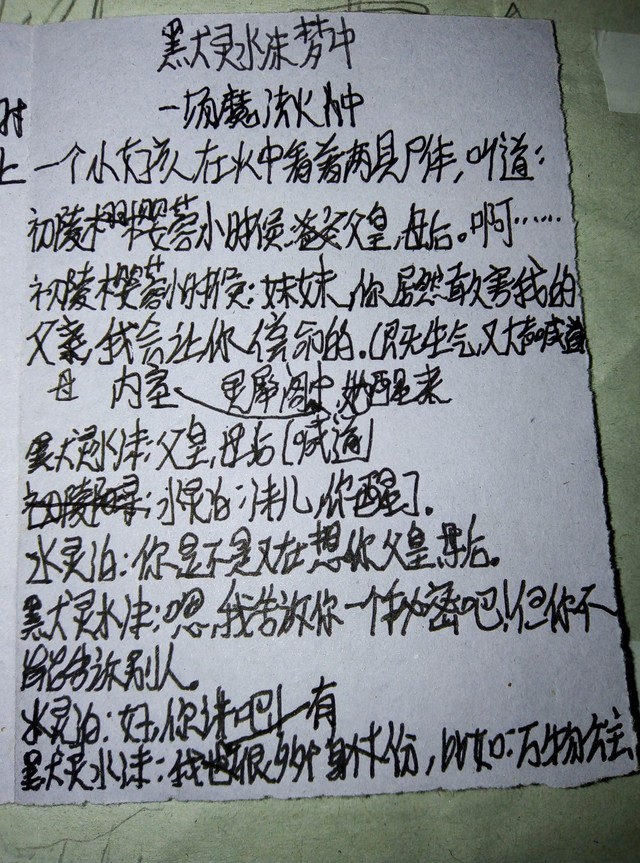 黑犬灵水沫梦中
一场魔法火中
一个小女孩人在火中看着两具尸体，叫道：
初陵樱蓉小时候：爸爸父皇，母后。啊……
初陵樱蓉小时候：妹妹，你居然敢害我的
父亲，我会让你偿命的。（既生气，又大声喊道
母 内室 灵犀阁中，她醒来
黑犬灵水沫：父皇，母后［喊道］
水灵泊：沫儿，你醒了.
水灵泊：你是不是又在想你父皇，母后。
黑犬灵水沫：嗯，我告放你一个秘密吧！但你不
能告诉别人。
水灵泊：好，你说吧！有
黑犬灵水沫：我很多个身体份，比如：万物公主